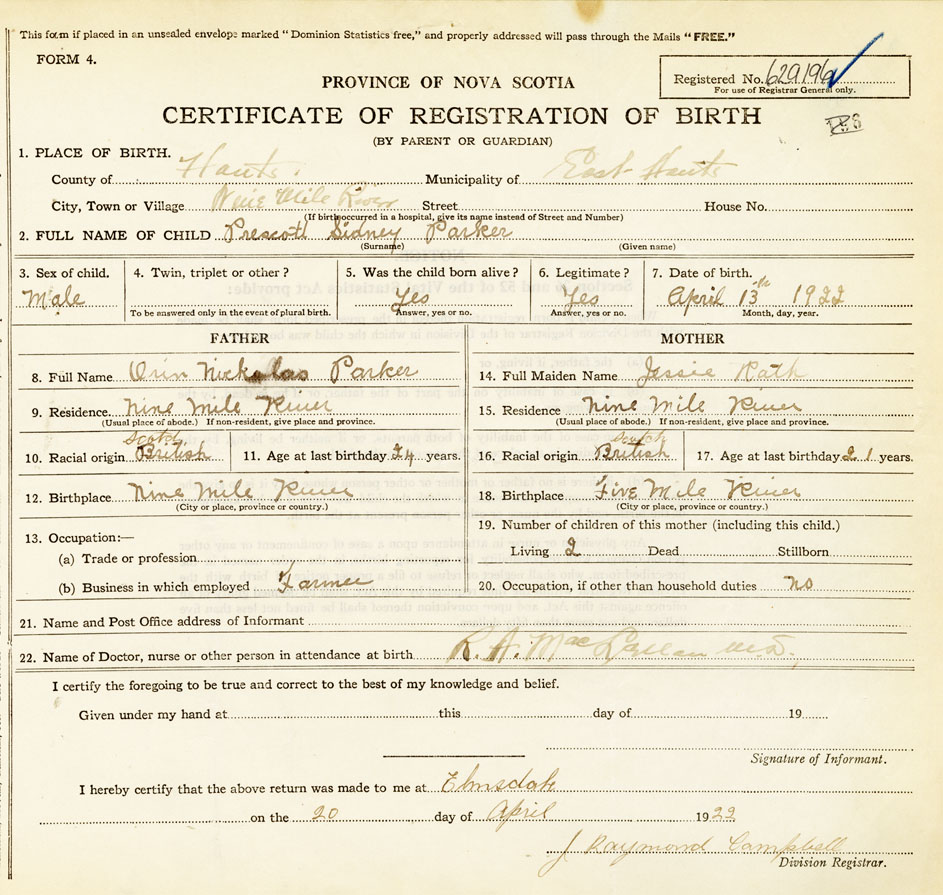 This form if placed in an unsealed envelope marked "Dominion Statistics free," and properly addressed will pass through the Mails "FREE."
FORM 4.
Registered No. 629196
For use of Registrar General only.
PROVINCE OF NOVA SCOTIA
CERTIFICATE OF REGISTRATION OF BIRTH
(BY PARENT OR GUARDIAN)
1. PLACE OF BIRTH.
County of Hants. Municipality of East Hants
City, Town or Village Nine Mile River Street House No.
(If birth occurred in a hospital, give its name instead of Street and Number)
2. FULL NAME OF CHILD Prescott Sidney Parker
(Surname) (Given name)
3. Sex of child. 4. Twin, triplet or other? 5. Was the child born alive? 6. Legitimate? 7. Date of birth.
Male Yes Yes April 13th 1922
To be answered only in the event of plural birth. Answer, yes or no. Answer, yes or no. Month, day, year.
FATHER MOTHER
8. Full Name Orin Nickolas Parker 14. Full Maiden Name Jessie Rath
9. Residence. Nine Mile River 15. Residence Nine Mile River
(Usual place of abode.) If non-resident, give place and province. (Usual place of abode.) If non-resident, give place and province.
Scotch Scotch
10. Racial origin British 11. Age at last birthday 24 years. 16. Racial origin British 17. Age at last birthday 21 years.
12. Birthplace Nine Mile River 18. Birthplace Five Mile River
(City or place, province or country.) (City or place, province or country.)
13. Occupation:— 19. Number of children of this mother (including this child.)
(a) Trade or profession Living 2 Dead Stillborn
(b) Business in which employed Farmer 20. Occupation, if other than household duties no
21. Name and Post Office address of Informant
22. Name of Doctor, nurse or other person in attendance at birth R. A. MacLellan M.D.,
I certify the foregoing to be true and correct to the best of my knowledge and belief.
Given under my hand at this day of 19
Signature of Informant.
I hereby certify that the above return was made to me at Elmsdale
on the 20 day of April 1922
J Raymond Campbell
Division Registrar.